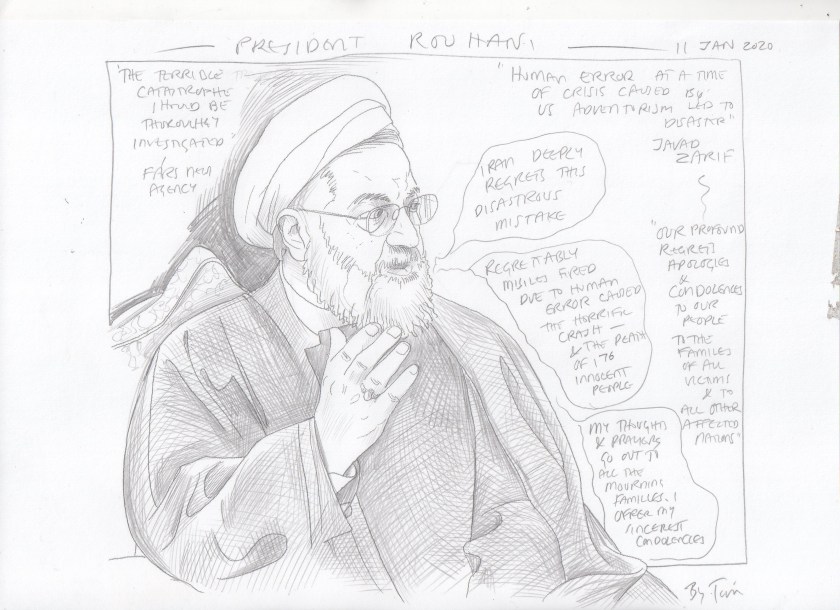 PRESIDENT ROUHANI
11 JAN 2020
"THE TERRIBLE
CATASTROPHE
SHOULD BE
THOROUGHLY
INVESTIGATED"
FARS NEWS
AGENCY
"HUMAN ERROR AT A TIME
OF CRISIS CAUSED BY
US ADVENTURISM LED TO
DISASTER"
JAVAD
ZARIF
"OUR PROFOUND
REGRETS
APOLOGIES
&
CONDOLENCES
TO OUR
PEOPLE
TO THE
FAMILIES
OF ALL
VICTIMS
& TO
ALL OTHER
AFFECTED
NATIONS"
IRAN DEEPLY
REGRETS THIS
DISASTROUS
MISTAKE
REGRETTABLY
MISSILES FIRED
DUE TO HUMAN
ERROR CAUSED
THE HORRIFIC
CRASH —
& THE DEATH
OF 176
INNOCENT
PEOPLE
MY THOUGHTS
& PRAYERS
GO OUT TO
ALL THE
MOURNING
FAMILIES. I
OFFER MY
SINCEREST
CONDOLENCES
By